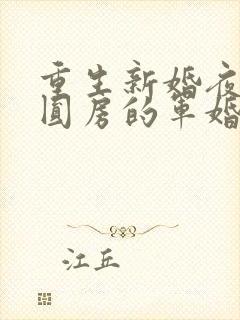 重生新婚夜
圆房的军婚
江丘